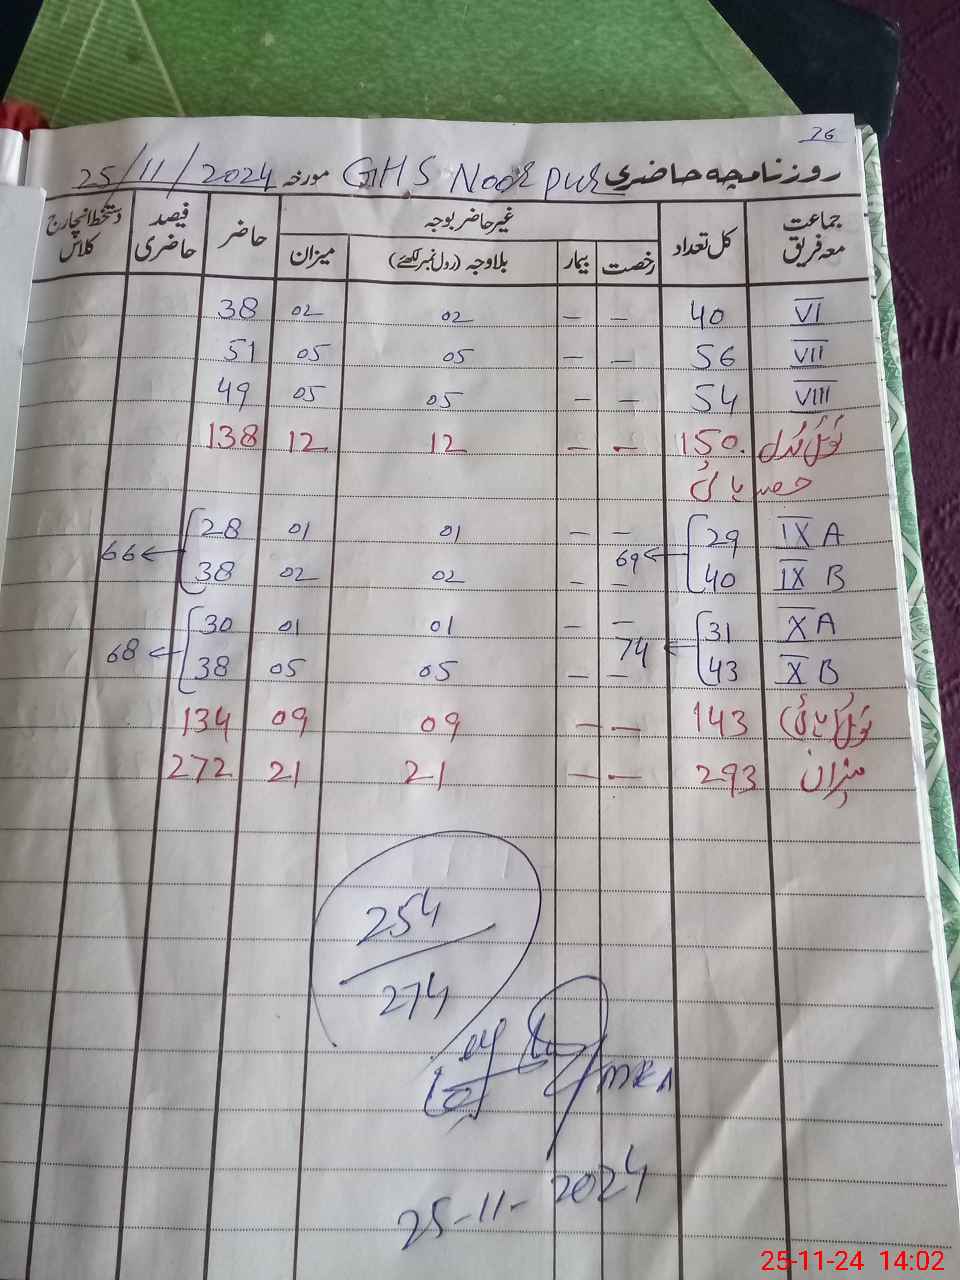 26
روزنامچہ حاضری GHS Noor pur مورخہ 25/11/2024
جماعت معہ فریق کل تعداد غیر حاضر بوجہ حاضر فیصد حاضری دستخط انچارج کلاس
رخصت بیمار بلاوجہ (رول نمبر لکھئے) میزان
VI 40 – – 02 02 38
VII 56 – – 05 05 51
VIII 54 – – 05 05 49
ٹوٹل مڈل 150 – – 12 12 138
حصہ ہائی
IX A 29 – – 01 01 28
69 66
IX B 40 – – 02 02 38
X A 31 – – 01 01 30
74 68
X B 43 – – 05 05 38
ٹوٹل ہائی 143 – – 09 09 134
میزان 293 – – 21 21 272
254
274
MEA
25-11-2024
25-11-24 14:02